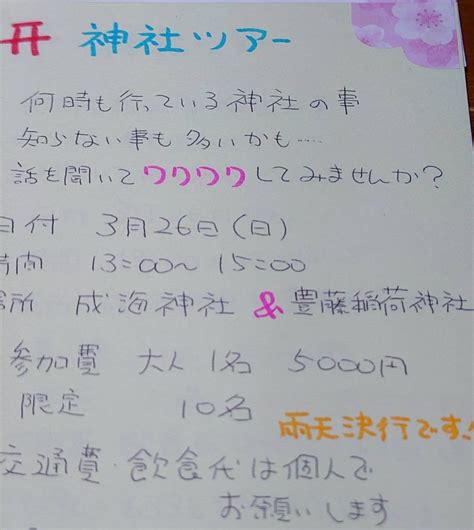 神社ツアー
何時も行っている神社の事
知らない事も多いかも……
話を聞いてワクワクしてみませんか?
日付 3月26日(日)
時間 13:00〜15:00
場所 成海神社 & 豊藤稲荷神社
参加費 大人1名 5000円
限定 10名
雨天決行です!
交通費・飲食代は個人で
お願いします